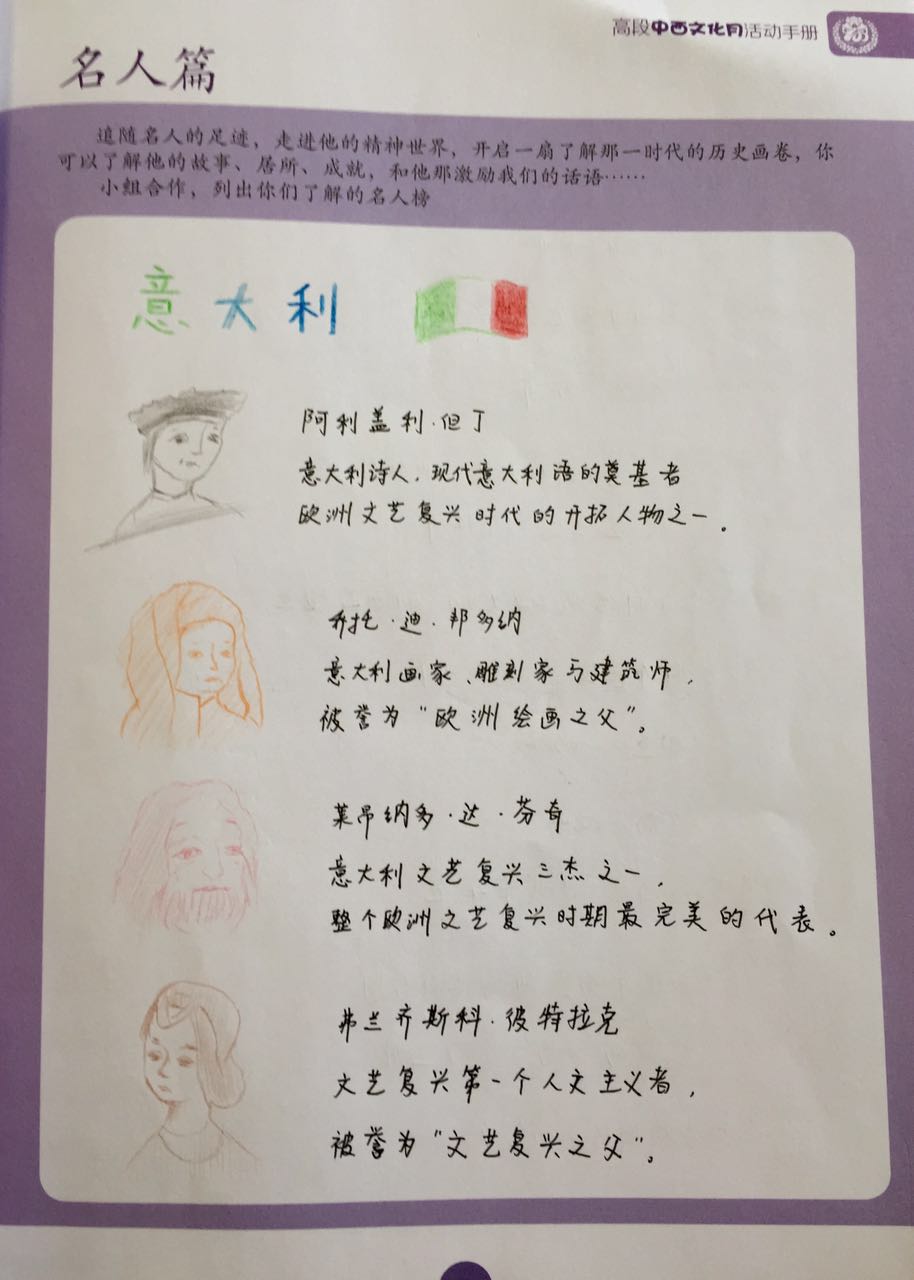 高段中西文化月活动手册
名人篇
追随名人的足迹，走进他的精神世界，开启一扇了解那一时代的历史画卷，你
可以了解他的故事、居所、成就，和他那激励我们的话语……
小组合作，列出你们了解的名人榜
意大利
阿利盖利·但丁
意大利诗人，现代意大利语的奠基者
欧洲文艺复兴时代的开拓人物之一。
乔托·迪·邦多纳
意大利画家、雕刻家与建筑师，
被誉为“欧洲绘画之父”。
莱昂纳多·达·芬奇
意大利文艺复兴三杰之一，
整个欧洲文艺复兴时期最完美的代表。
弗兰齐斯科·彼特拉克
文艺复兴第一个人文主义者，
被誉为“文艺复兴之父”。